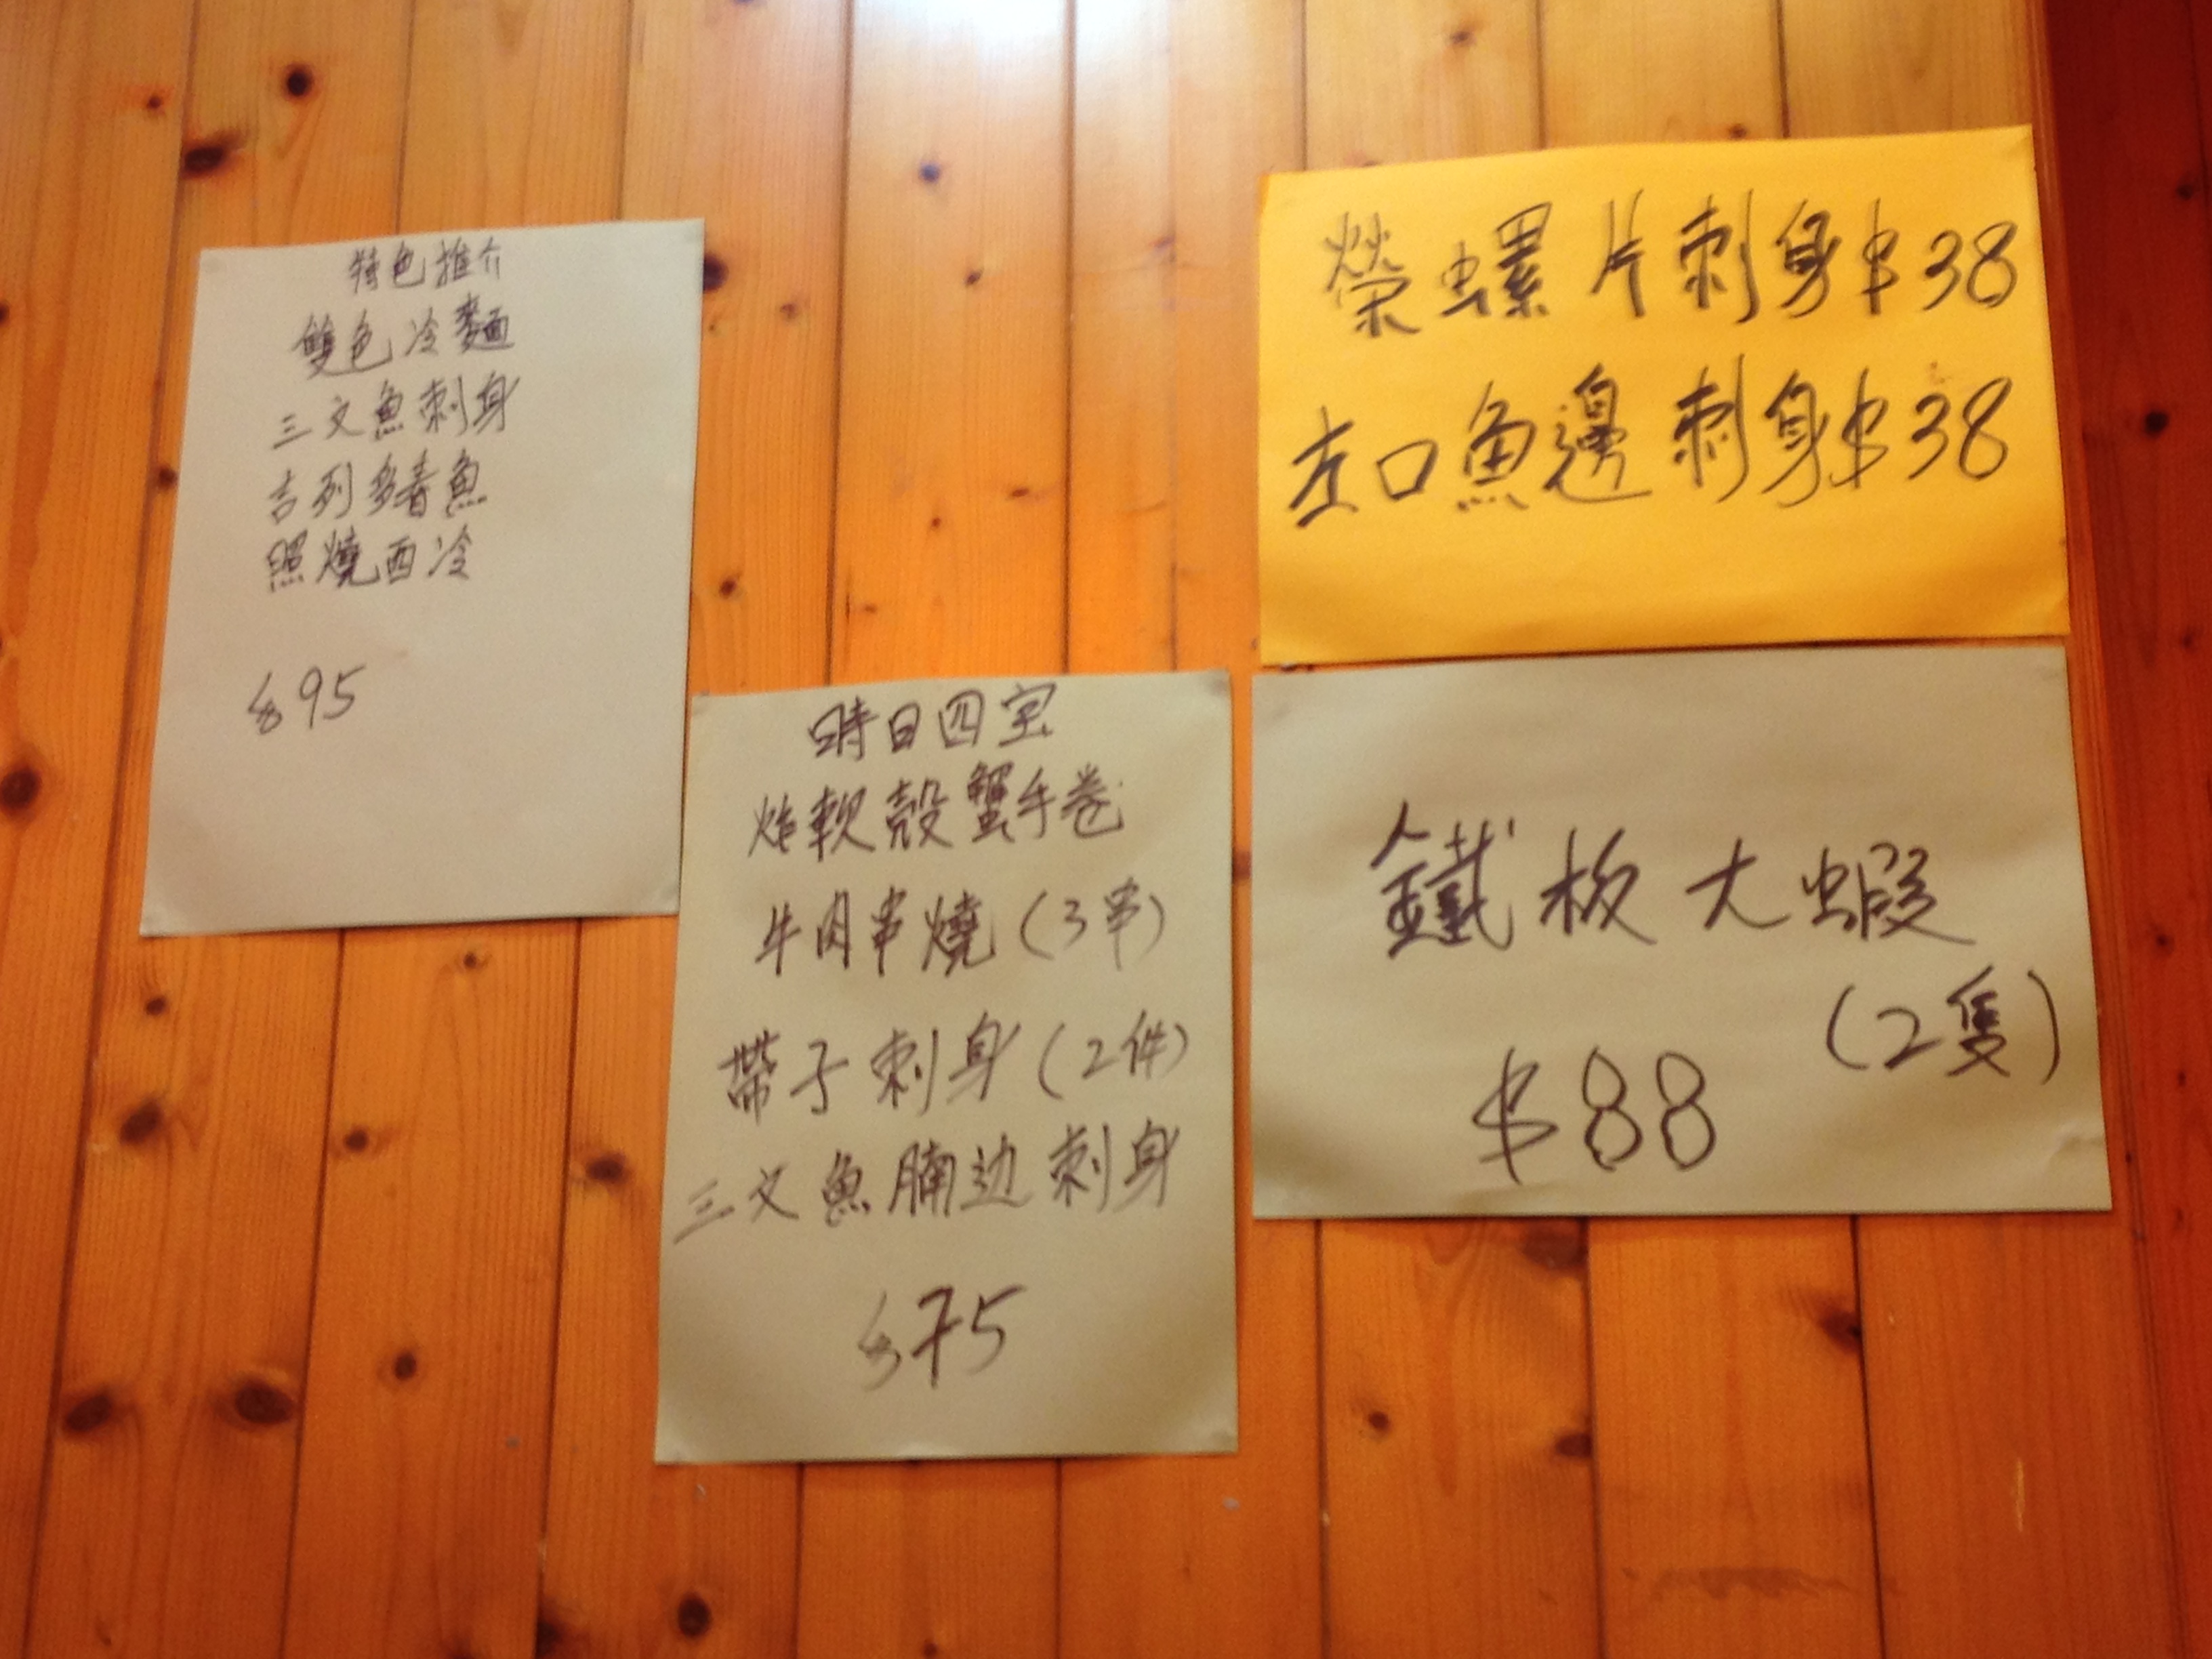 特色推介
雙色冷麵
三文魚刺身
吉列多春魚
照燒西冷
$95
時日四宝
炸軟殼蟹手卷
牛肉串燒(3串)
帶子刺身(2件)
三文魚腩边刺身
$75
榮螺片刺身$38
左口魚邊刺身$38
鐵板大蝦
(2隻)
$88